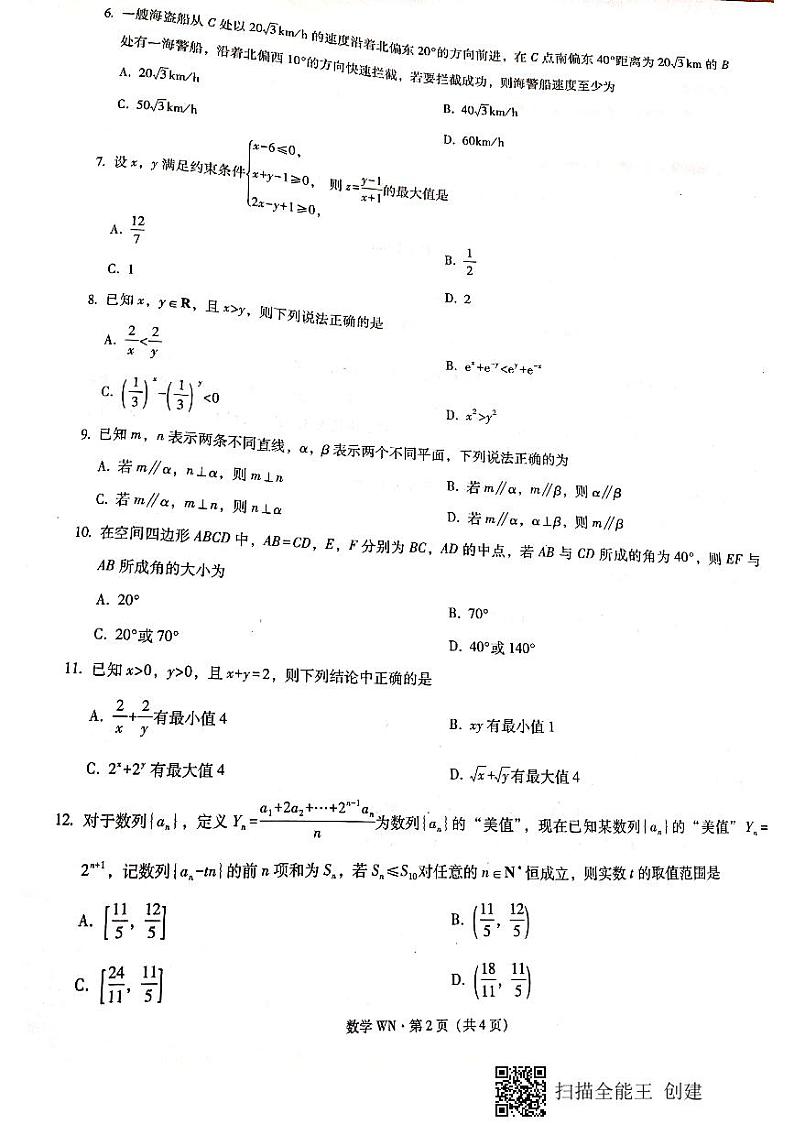 6. 一艘海盗船从 C 处以 20√3km/h 的速度沿着北偏东 20°的方向前进，在 C 点南偏东 40°距离为 20√3 km 的 B
处有一海警船，沿着北偏西 10°的方向快速拦截，若要拦截成功，则海警船速度至少为
A. 20√3km/h
B. 40√3km/h
C. 50√3km/h
D. 60km/h
7. 设 x，y 满足约束条件{x-6≤0，x+y-1≥0，2x-y+1≥0，则 z=(y-1)/(x+1)的最大值是
A. 12/7
B. 1/2
C. 1
D. 2
8. 已知 x，y∈R，且 x>y，则下列说法正确的是
A. 2/x<2/y
B. eˣ+e⁻ʸ<eʸ+e⁻ˣ
C. (1/3)ˣ-(1/3)ʸ<0
D. x²>y²
9. 已知 m，n 表示两条不同直线，α，β表示两个不同平面，下列说法正确的为
A. 若 m∥α，n⊥α，则 m⊥n
B. 若 m∥α，m∥β，则 α∥β
C. 若 m∥α，m⊥n，则 n⊥α
D. 若 m∥α，α⊥β，则 m∥β
10. 在空间四边形 ABCD 中，AB=CD，E，F 分别为 BC，AD 的中点，若 AB 与 CD 所成的角为 40°，则 EF 与
AB 所成角的大小为
A. 20°
B. 70°
C. 20°或 70°
D. 40°或 140°
11. 已知 x>0，y>0，且 x+y=2，则下列结论中正确的是
A. 2/x+2/y有最小值 4
B. xy 有最小值 1
C. 2ˣ+2ʸ 有最大值 4
D. √x+√y有最大值 4
12. 对于数列{aₙ}，定义 Yₙ=(a₁+2a₂+⋯+2ⁿ⁻¹aₙ)/n为数列{aₙ}的“美值”，现在已知某数列{aₙ}的“美值” Yₙ=
2ⁿ⁺¹，记数列{aₙ-tn}的前 n 项和为 Sₙ，若 Sₙ≤S₁₀对任意的 n∈N*恒成立，则实数 t 的取值范围是
A. [11/5，12/5]
B. (11/5，12/5)
C. [24/11，11/5]
D. (18/11，11/5)
数学 WN·第 2 页（共 4 页）
扫描全能王 创建